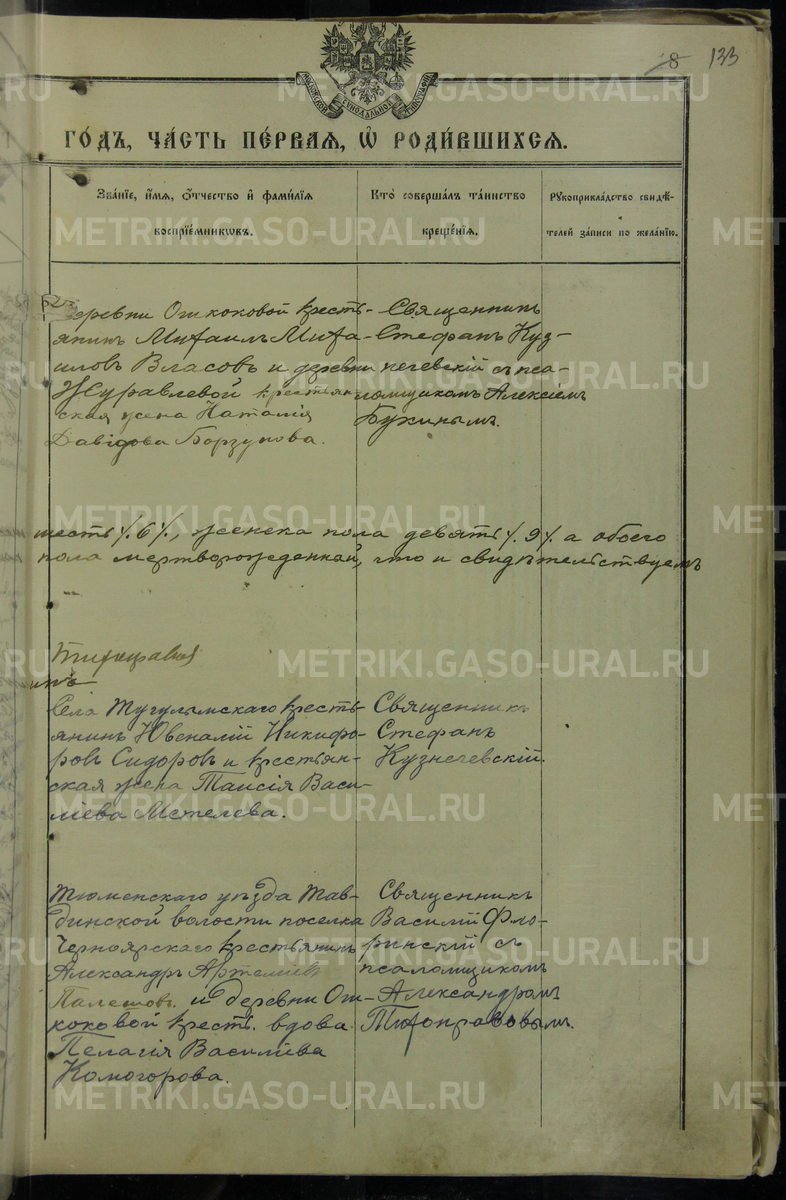 133
ГО́ДЪ, ЧА́СТЬ ПЕ́РВАЯ, Ѡ҆ РОДИ́ВШИХСЯ.
Зва́нїе, и҆́мя, ѻ҆́тчество и҆ фами́лїя
воспрїе́мникѡвъ.
Кто̀ соверша́лъ та́инство
креще́нїя.
Рукоприкла́дство свидѣ́-
телей за́писи по жела́нїю.
Деревни Ошкоковой кресть-
янинъ Михаилъ Миха-
иловъ Власовъ и деревни
Журавлевой крестьян
ская жена Наталія
Давидова Борзунова.
Священникъ
Стефанъ Куз-
нечевскій съ пса-
ломщикомъ Алексіемъ
Букинымъ.
шесть /.6/., женска пола девять /.9/. а обоего
пола мертворожденной, что и свидѣтельствуемъ
Села Тугулымскаго кресть-
янинъ Ювеналій Никифо-
ровъ Сидоровъ и крестьян-
ская жена Таисія Васи-
ліева Метелева.
Священникъ
Стефанъ
Кузнечевскій.
Тюменскаго уѣзда Тав-
динской волости поселка
Черноярскаго крестьянинъ
Александръ Артеміевъ
и деревни Ош-
коковой кресть. вдова
Пелагія Василіева
Комогорова.
Священникъ
Василій Фло-
ринскій съ
псаломщикомъ
Александромъ
METRIKI.GASO-URAL.RU